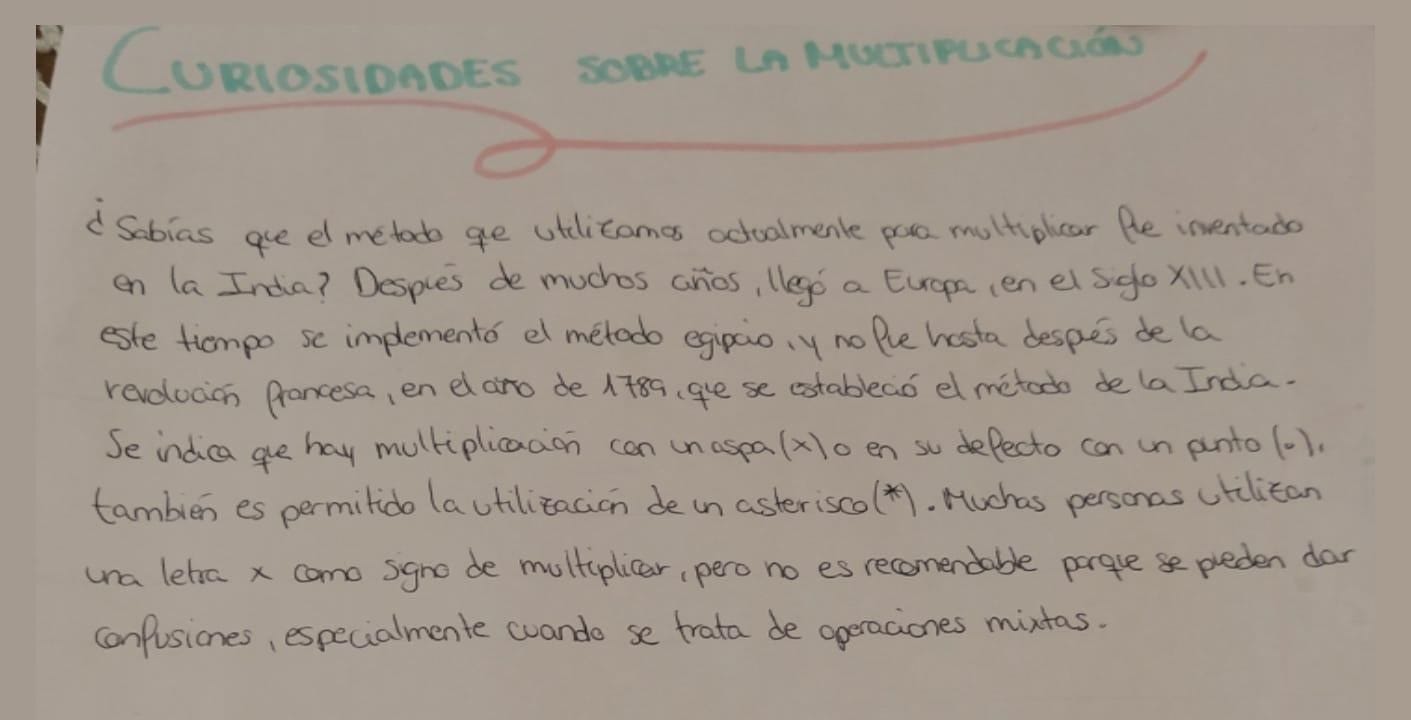 CURIOSIDADES SOBRE LA MULTIPLICACIÓN
¿Sabías que el método que utilizamos actualmente para multiplicar fue inventado
en la India? Después de muchos años, llegó a Europa, en el siglo XIII. En
este tiempo se implementó el método egipcio, y no fue hasta después de la
revolución francesa, en el año de 1789, que se estableció el método de la India.
Se indica que hay multiplicación con un aspa (x) o en su defecto con un punto (·),
también es permitido la utilización de un asterisco (*). Muchas personas utilizan
una letra x como signo de multiplicar, pero no es recomendable porque se pueden dar
confusiones, especialmente cuando se trata de operaciones mixtas.